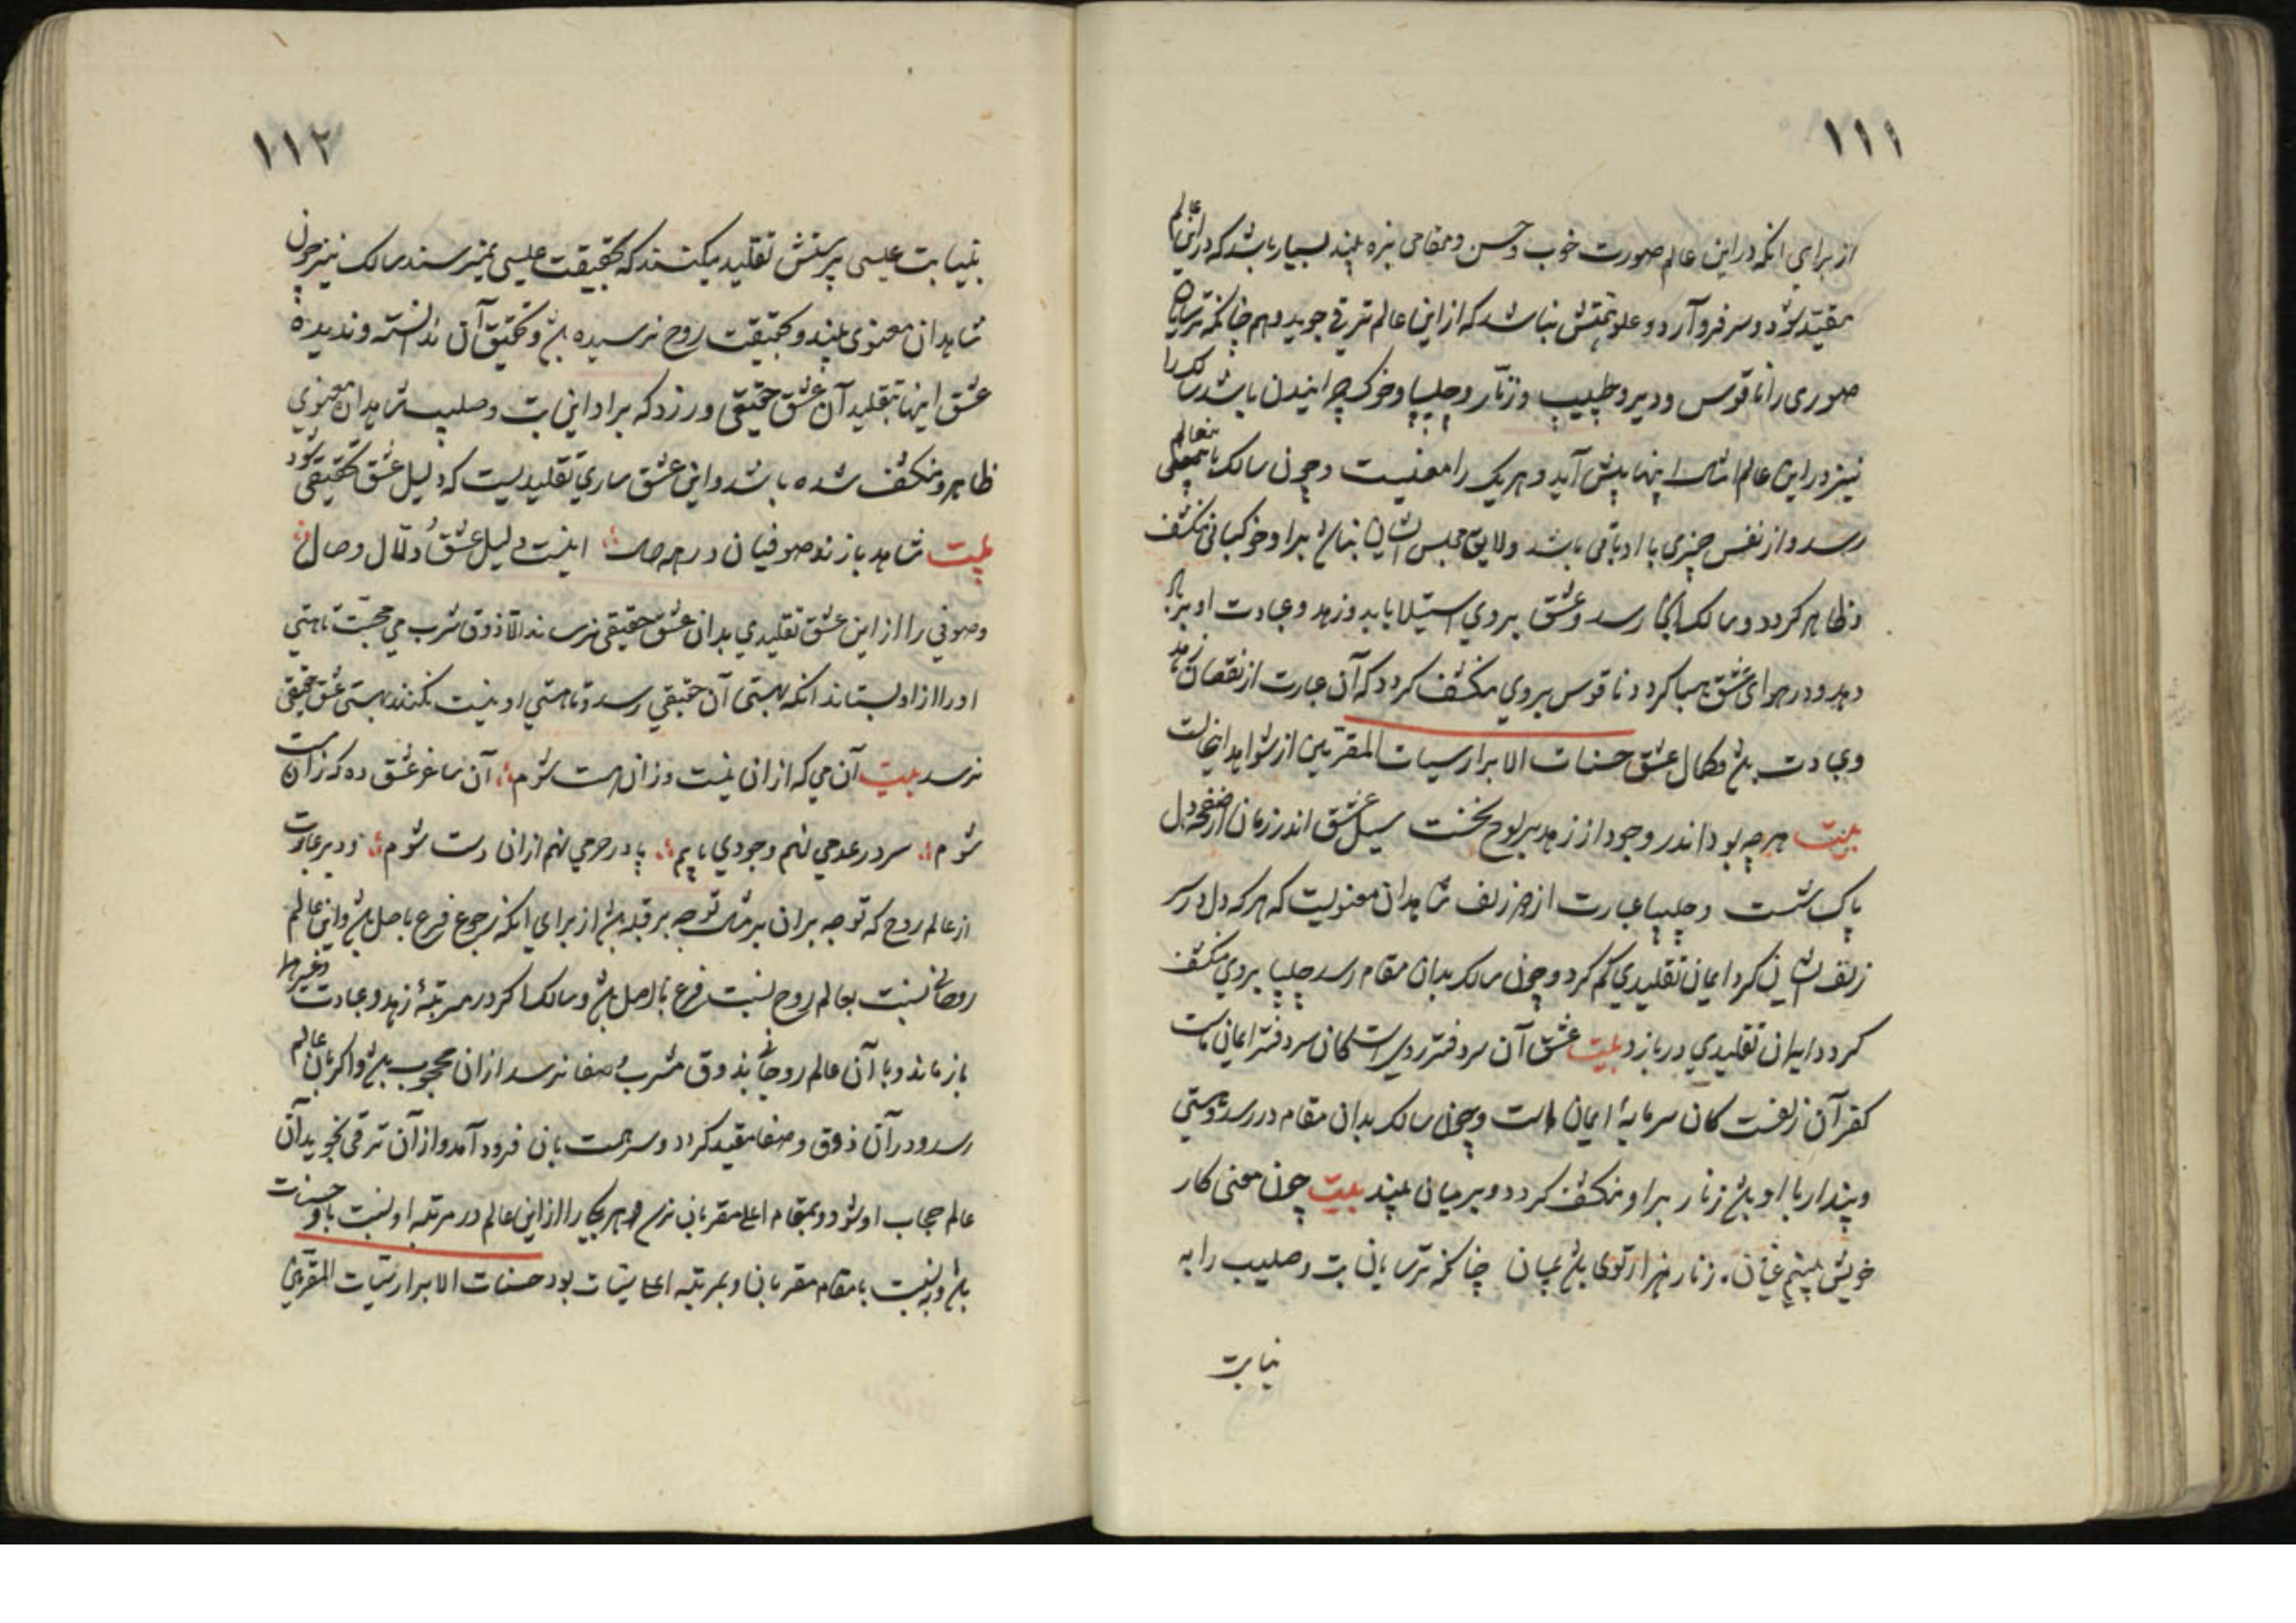 ١١١
از براي انكه در اين عالم صورت خوب و حسن و مقامى نزه بيند بسيار باشد كه در اين عالم
مقيّد شود و سر فرو آرد و علو همتش نباشد كه از اين عالم ترقي جويد و هم چنانكه ترسايان
صورى را ناقوس و دير و صليب و زنّار و چليپا و خوك چرانيدن باشد سالك را
نيز در اين عالم امثال اينها پيش آيد و هر يك را معنيست و چون سالك باين عالم
رسد و از نفس چيزى با او باقى باشد ولايق مجلس ايشان نباشد بر او خوكبانى منكشف
و ظاهر كردد و سالك آنجا رسد و عشق بروي استيلا يابد و زهد و عبادت او بر باد
دهد و در هواى عشق هبا كردد ناقوس بروي منكشف كردد كه آن عبارت از نقصان زهد
و عبادت باشد و كمال عشق حسنات الابرار سيات المقرّبين از شواهد اينحالت
بيت هرچه بود اندر وجود از زهد بر لوح نخست سيل عشق اندر زمان از صفحهٔ دل
پاك شست و چليپا عبارت از سر زلف شاهدان معنويست كه هر كه دل در سر
زلف ايشان كرد ايمان تقليدي كم كرد و چون سالك بدان مقام رسد چليپا بروي منكشف
كردد ايمان تقليدي در بازد بيت عشق آن سر دفتر رديست كان سر دفتر ايمان ماست
كفر آن زلفست كان سرمايهٔ ايمان ماست و چون سالك بدان مقام در رسد و هستي
و پندار با او باشد زنار بر او منكشف كردد و بر ميان بيند بيت چون معنى كار
خويش بينم زنار هزار توى باشد بميان چنانكه ترسايان بت و صليب را به
نيابت
١١٢
بنيابت عيسى پرستش تقليد ميكنند كه بحقيقت عيسى نميرسند سالك نيز چون
شاهدان معنوى بيند و بحقيقت روح نرسيده باشد و تحقيق آن ندانسته و نديده
عشق اينها بتقليد آن عشق حقيقى ورزد كه بر او اين بت و صليب شاهدان معنوي
ظاهر و منكشف شده باشد و اين عشق ساري تقليديست كه دليل عشق تحقيقى شود
بيت شاهد بازند صوفيان در همه حال اينست دليل عشق و دلّال وصال
و صوفي را از اين عشق تقليدي بدان عشق حقيقى نرساند الّا ذوق شرب مي محبّت تا هستي
او را از او بستاند انكه بهستى آن حقيقي رسد و تا هستي او نيست نكنند بهستى عشق حقيقى
نرسد بيت آن مي كه از ان نيست وزان هست شوم آن ساغر عشق ده كه زان مست
شوم سر در عدمي نهم وجودي يابم پا در حرمي نهم از ان دست شوم و دير عبارت
از عالم روح كه توجه بر ان بر مثال توجه بر قبله باشد از براي انكه رجوع فرع باصل باشد و اين عالم
روحانى نسبت بعالم روح نسبت فرع باصل باشد و سالك اكر در مرتبهٔ زهد و عبادت و غيرها
باز ماند و با آن عالم روحانى بذوق مشرب صفا نرسد از ان محجوب باشد و اكر بآن عالم
رسد و در آن ذوق و صفا مقيد كردد و سر همت بان فرود آمد و از آن ترقى نجويد آن
عالم حجاب او شود و بمقام اعلى مقربان نرسد و هر يكى را از اين عالم در مرتبه او نسبت باو حسنات
باشد و نسبت با مقام مقربان و بمرتبه اعلى سيئات بود حسنات الابرار سيّات المقرّبين